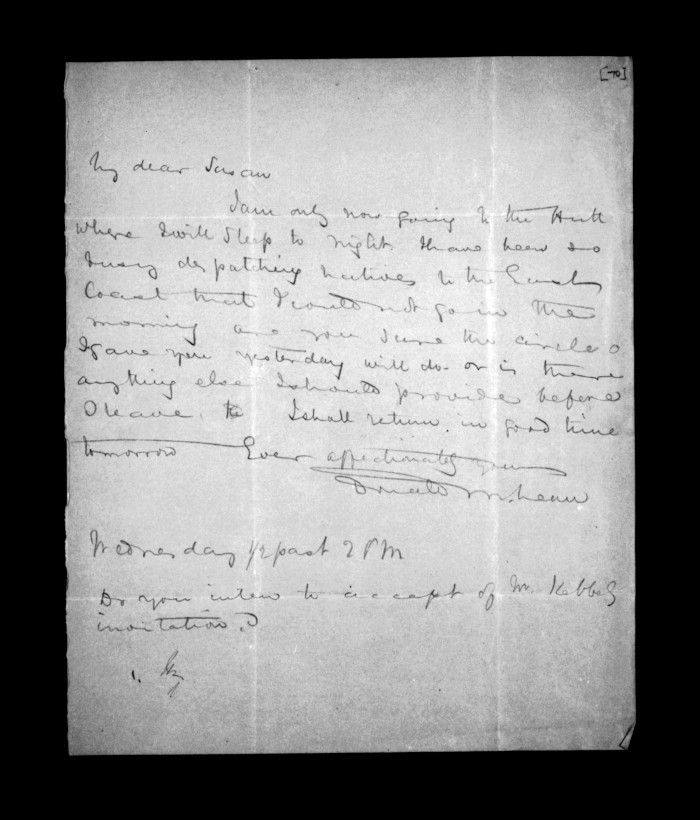 [70]
My dear Susan
I am only now going to the Hutt
where I will Sleep to night I have been so
busy despatching natives to the East
Coast that I could not go in the
morning are you sure the circle
I gave you yesterday will do. or is there
anything else I should provide before
I leave. I shall return. in good time
tomorrow Ever affectionately yours
Donald McLean
Wednesday 1/2 past 2 PM
Do you intend to accept of Mr. Kebbels
invitation?